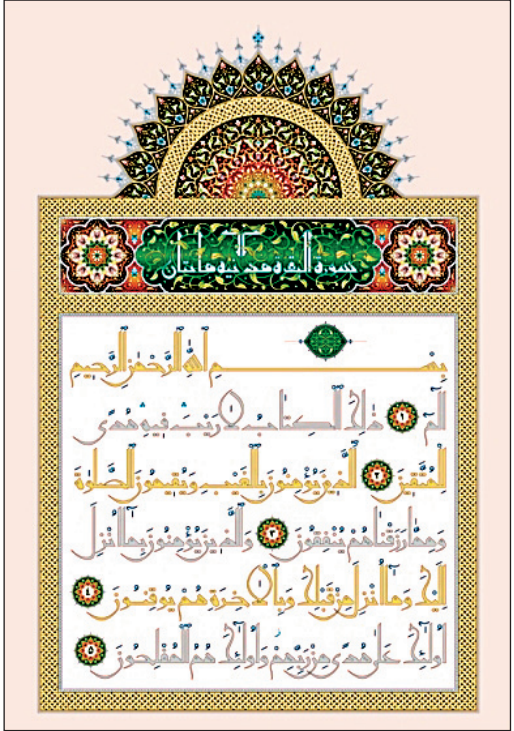 سورة البقرة مدنية مايتان
بِسْمِ اللهِ الرَّحْمٰنِ الرَّحِيمِ
الم ١ ذٰلِكَ الْكِتَابُ لَا رَيْبَ فِيهِ هُدًى
لِلْمُتَّقِينَ ٢ الَّذِينَ يُؤْمِنُونَ بِالْغَيْبِ وَيُقِيمُونَ الصَّلٰوةَ
وَمِمَّا رَزَقْنَاهُمْ يُنْفِقُونَ ٣ وَالَّذِينَ يُؤْمِنُونَ بِمَا أُنْزِلَ
إِلَيْكَ وَمَا أُنْزِلَ مِنْ قَبْلِكَ وَبِالْآخِرَةِ هُمْ يُوقِنُونَ ٤
أُولٰئِكَ عَلٰى هُدًى مِنْ رَبِّهِمْ وَأُولٰئِكَ هُمُ الْمُفْلِحُونَ ٥